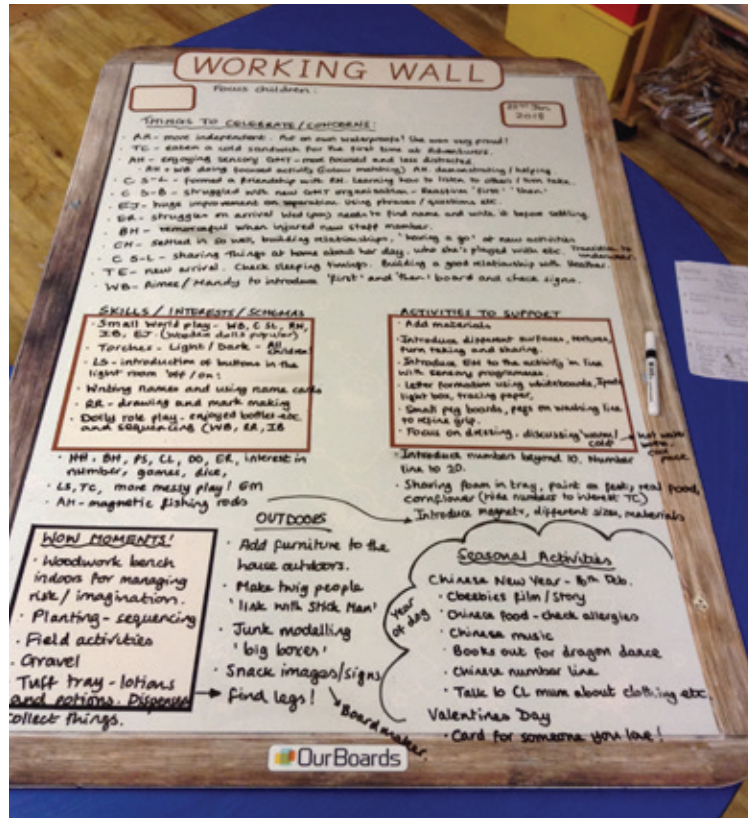 WORKING WALL
Focus children:
22nd Jan
2018
THINGS TO CELEBRATE/CONCERNS:
· AR - more independent. Put on own waterproofs! She was very proud!
· TC - eaten a cold sandwich for the first time at Adventurers.
· AH - enjoying sensory - more focused and less distracted
· AH + WB doing focused activity (colour matching) AH demonstrating/helping.
· C S-L - formed a friendship with RH. Learning how to listen to others / turn take.
· C S-B - struggled with new organisation - Reassure 'first' 'then'
· EJ - huge improvement on separation. Using phrases / questions etc.
· ER - struggles on arrival Wed (pm) needs to find name and write it before settling.
· BH - remorseful when injured new staff member.
· CH - settled in so well, building relationships, 'having a go' at new activities
· C S-L - sharing things at home about her day, who she's played with etc. Transition to underwear.
· TE - new arrival. Check sleeping timings. Building a good relationship with Heather.
· WB - Aimee/Mandy to introduce 'first' and 'then' board and check signs.
SKILLS / INTERESTS/SCHEMAS
· Small World play - WB, C SL, RH,
IB, EJ (Wooden dolls popular)
· Torches - Light / Dark - All children!
· LS - introduction of buttons in the
light room 'off/on!
· Writing names and using name cards
· RR - drawing and mark making
· Dolly role play - enjoyed bottles etc
and sequencing (WB, RR, IB
· HH, BH, PS, CL, DO, ER, interest in
number, games, dice,
· LS, TC, more messy play! EM
· AH - magnetic fishing rods
ACTIVITIES TO SUPPORT
· Add materials
· Introduce different surfaces, textures,
turn taking and sharing.
· Introduce EM to the activity in line
with sensory programmes.
· Letter formation using whiteboards, Ipads
light box, tracing paper,
· Small peg boards, pegs on washing line
to refine grip.
· Focus on dressing, discussing 'warm/
cold' → hot water bottle, cool pack
· Introduce numbers beyond 10. Number
line to 20.
· Sharing foam in tray, paint on feet, real food,
cornflower (hide numbers to interest TC)
Introduce magnets, different sizes, materials
WOW MOMENTS!
· Woodwork bench
indoors for managing
risk/imagination.
· Planting - sequencing
· Field activities
· Gravel
· Tuff tray - lotions
and potions.
collect things.
OUTDOORS
· Add furniture to the
house outdoors.
· Make twig people
'link with Stick Man'
· Junk modelling
'big boxes'
· Snack images/signs
Boardmaker.
· find legs!
Seasonal Activities
Chinese New Year - 16th Feb.
Year of dog
· Cbeebies film/story
· Chinese food - check allergies
· Chinese music
· Books out for dragon dance
· Chinese number line
· Talk to CL mum about clothing etc.
Valentines Day
· Card for someone you love!
OurBoards